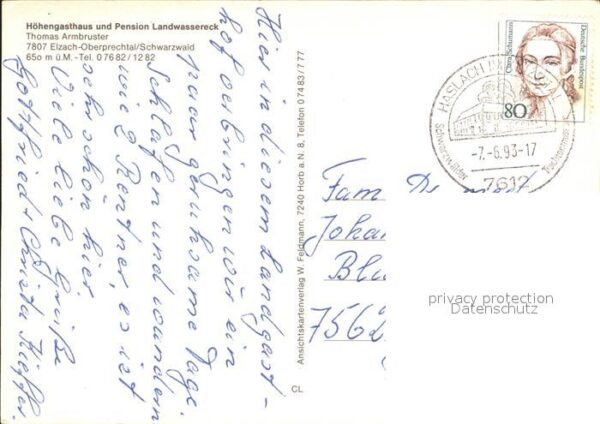 Höhengasthaus und Pension Landwassereck
Thomas Armbruster
7807 Elzach-Oberprechtal/Schwarzwald
650 m ü.M. -Tel. 0 76 82 / 12 82
Hier in diesem Landgast-
hof verbringen wir ein
paar geruhsame Tage.
Schlafen und wandern
wie 2 Rentner, es ist
sehr schön hier.
Viele liebe Grüße
Gottfried + Christa Kieffer.
Ansichtskartenverlag W. Feldmann, 7240 Horb a. N. 8, Telefon 07483/777
CL
Clara Schumann
Deutsche Bundespost
80
HASLACH IM
-7.-6.93-17
Schwarzwälder
Trachtenmuseum
7612
Fam
Joha
Bl
7562
privacy protection
Datenschutz